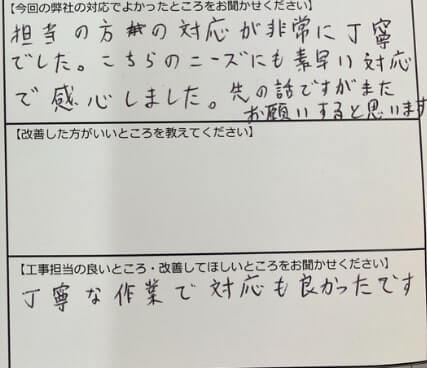 【今回の弊社の対応でよかったところをお聞かせください】
担当の方の対応が非常に丁寧
でした。こちらのニーズにも素早い対応
で感心しました。先の話ですがまた
お願いすると思います
【改善した方がいいところを教えてください】
【工事担当の良いところ・改善してほしいところをお聞かせください】
丁寧な作業で対応も良かったです